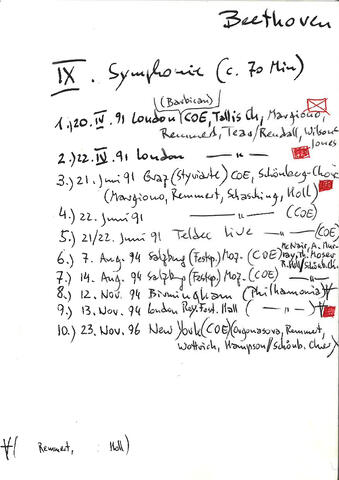 Beethoven
IX. Symphonie (c. 70 Min)
(Barbican)
1.) 20. IV. 91 London (COE, Tallis Ch, Margiono,
Remmert, Rendall, Wilson
Jones
2.) 22. IV. 91 London — " —
3.) 21. Juni 91 Graz (Styriarte) COE, Schönberg-Chor
(Margiono, Remmert, Schasching, Holl)
4.) 22. Juni 91 — " — (COE)
5.) 21/22. Juni 91 Teldec live — " — (COE)
6.) 7. Aug. 94 Salzburg (Festsp.) Moz. (COE) McNair, A.
Moser
R. Holl/Schönb. Ch.
7.) 14. Aug. 94 Salzburg (Festsp.) Moz. (COE) — " —
8.) 12. Nov. 94 Birmingham (Philharmonia) ∀
9.) 13. Nov. 94 London Roy. Fest. Hall ( — " — ) ∀
10.) 23. Nov. 96 New York (COE) (Orgonasova, Remmert,
Wottrich, Hampson/Schönb. Chor)
∀ ( Remmert, : Holl)